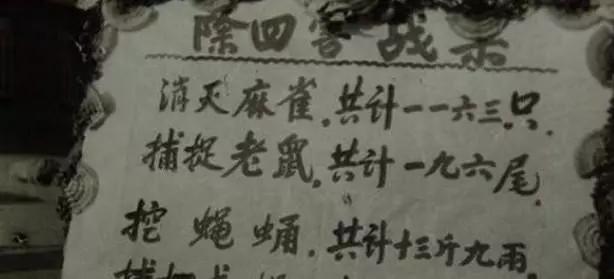 除四害战果
消灭麻雀,共计一一六三只.
捕捉老鼠,共计一九六尾.
挖蝇蛹,共计十三斤九两.